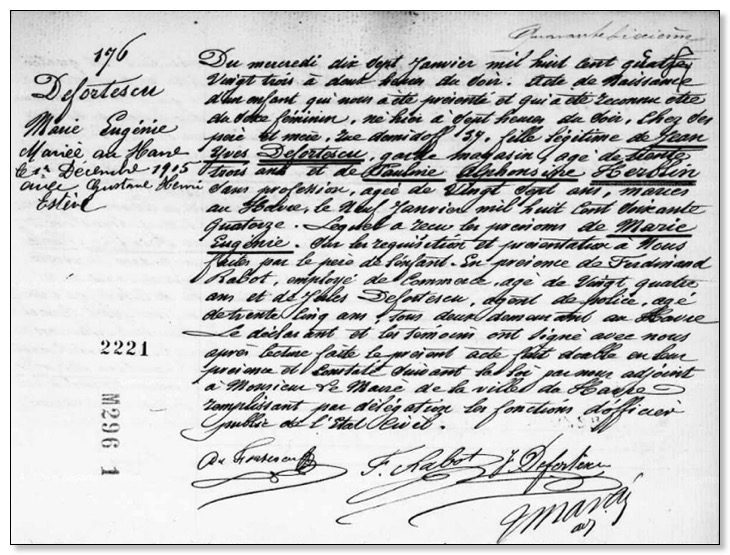 176
Defortescu
Marie Eugénie
Mariée au Havre
le 1er Decembre 1915
avec Gustave Henri
Estève
2221
M296 1
Du mercredi dix Sept Janvier mil huit Cent quatre
Vingt trois à deux heures du Soir. Acte de Naissance
d'un enfant qui nous a été présenté et qui a été reconnu être
du Sexe féminin, né hier à Sept heures du Soir, Chez ses
père et mère, rue demidoff 37, fille légitime de Jean
Yves Defortescu, garde magasin, agé de trente
trois ans et de Pauline Alphonsine Herbrin
Sans profession, agée de Vingt Sept ans, mariés
au Havre, le Neuf Janvier mil huit Cent Soixante
quatorze. Lequel a reçu les prénoms de Marie
Eugénie. Sur les requisition et présentation à Nous
faites par le père de l'enfant. En présence de Ferdinand
Rabot, employé de Commerce, agé de Vingt quatre
ans et de Jules Defortescu, agent de police, agé
de trente Cinq ans, tous deux demeurant au Havre
Le déclarant et les témoins ont signé avec nous
après lecture faite le présent acte fait double en leur
présence et Constaté Suivant la loi par nous adjoint
à Monsieur le Maire de la ville du Havre
remplissant par délégation les fonctions d'officier
public de l'Etat Civil.
F. Rabot J. Defortescu